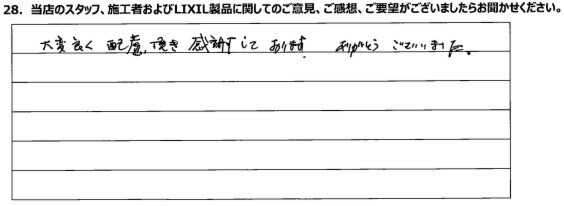 28. 当店のスタッフ、施工者およびLIXIL製品に関してのご意見、ご感想、ご要望がございましたらお聞かせください。
大変良く配慮頂き感謝して おります ありがとう ございました。